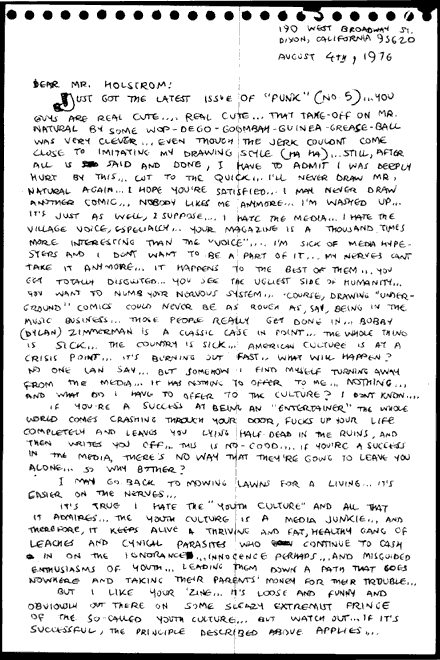 190 WEST BROADWAY ST.
DIXON, CALIFORNIA 95620
AUGUST 4TH, 1976
DEAR MR. HOLSTROM:
JUST GOT THE LATEST ISSUE OF "PUNK" (NO 5)... YOU
GUYS ARE REAL CUTE... REAL CUTE... THAT TAKE-OFF ON MR.
NATURAL BY SOME WOP-DEGO-GOOMBAH-GUINEA-GREASE-BALL
WAS VERY CLEVER... EVEN THOUGH THE JERK COULDNT COME
CLOSE TO IMITATING MY DRAWING STYLE (HA HA)... STILL, AFTER
ALL IS SAID AND DONE, I HAVE TO ADMIT I WAS DEEPLY
HURT BY THIS... CUT TO THE QUICK... I'LL NEVER DRAW MR.
NATURAL AGAIN... I HOPE YOU'RE SATISFIED... I MAY NEVER DRAW
ANOTHER COMIC... NOBODY LIKES ME ANYMORE... I'M WASHED UP...
IT'S JUST AS WELL, I SUPPOSE... I HATE THE MEDIA... I HATE THE
VILLAGE VOICE, ESPECIALLY... YOUR MAGAZINE IS A THOUSAND TIMES
MORE INTERESTING THAN THE "VOICE"... I'M SICK OF MEDIA HYPE-
STERS AND I DONT WANT TO BE A PART OF IT... MY NERVES CAN'T
TAKE IT ANYMORE... IT HAPPENS TO THE BEST OF THEM... YOU
GET TOTALLY DISGUSTED... YOU SEE THE UGLIEST SIDE OF HUMANITY...
YOU WANT TO NUMB YOUR NERVOUS SYSTEM... 'COURSE, DRAWING "UNDER-
GROUND" COMICS COULD NEVER BE AS ROUGH AS, SAY, BEING IN THE
MUSIC BUSINESS... THOSE PEOPLE REALLY GET DONE IN... BOBBY
(DYLAN) ZIMMERMAN IS A CLASSIC CASE IN POINT... THE WHOLE THING
IS SICK... THE COUNTRY IS SICK... AMERICAN CULTURE IS AT A
CRISIS POINT... IT'S BURNING OUT FAST... WHAT WILL HAPPEN?
NO ONE CAN SAY... BUT SOMEHOW I FIND MYSELF TURNING AWAY
FROM THE MEDIA... IT HAS NOTHING TO OFFER TO ME... NOTHING...
AND WHAT DO I HAVE TO OFFER TO THE CULTURE? I DONT KNOW...
IF YOU'RE A SUCCESS AT BEING AN "ENTERTAINER" THE WHOLE
WORLD COMES CRASHING THROUGH YOUR DOOR, FUCKS UP YOUR LIFE
COMPLETELY AND LEAVES YOU LYING HALF-DEAD IN THE RUINS, AND
THEN WRITES YOU OFF... THIS IS NO-GOOD... IF YOU'RE A SUCCESS
IN THE MEDIA, THERE'S NO WAY THAT THEY'RE GOING TO LEAVE YOU
ALONE... SO WHY BOTHER?
I MAY GO BACK TO MOWING LAWNS FOR A LIVING... IT'S
EASIER ON THE NERVES...
IT'S TRUE I HATE THE "YOUTH CULTURE" AND ALL THAT
IT ADMIRES... THE YOUTH CULTURE IS A MEDIA JUNKIE... AND
THEREFORE, IT KEEPS ALIVE A THRIVING AND FAT, HEALTHY GANG OF
LEACHES AND CYNICAL PARASITES WHO CONTINUE TO CASH
IN ON THE IGNORANCE... INNOCENCE PERHAPS... AND MISGUIDED
ENTHUSIASMS OF YOUTH... LEADING THEM DOWN A PATH THAT GOES
NOWHERE AND TAKING THEIR PARENTS' MONEY FOR THEIR TROUBLE...
BUT I LIKE YOUR 'ZINE... IT'S LOOSE AND FUNNY AND
OBVIOUSLY OUT THERE ON SOME SLEAZY EXTREMIST FRINGE
OF THE SO-CALLED YOUTH CULTURE... BUT WATCH OUT... IF IT'S
SUCCESSFUL, THE PRINCIPLE DESCRIBED ABOVE APPLIES...